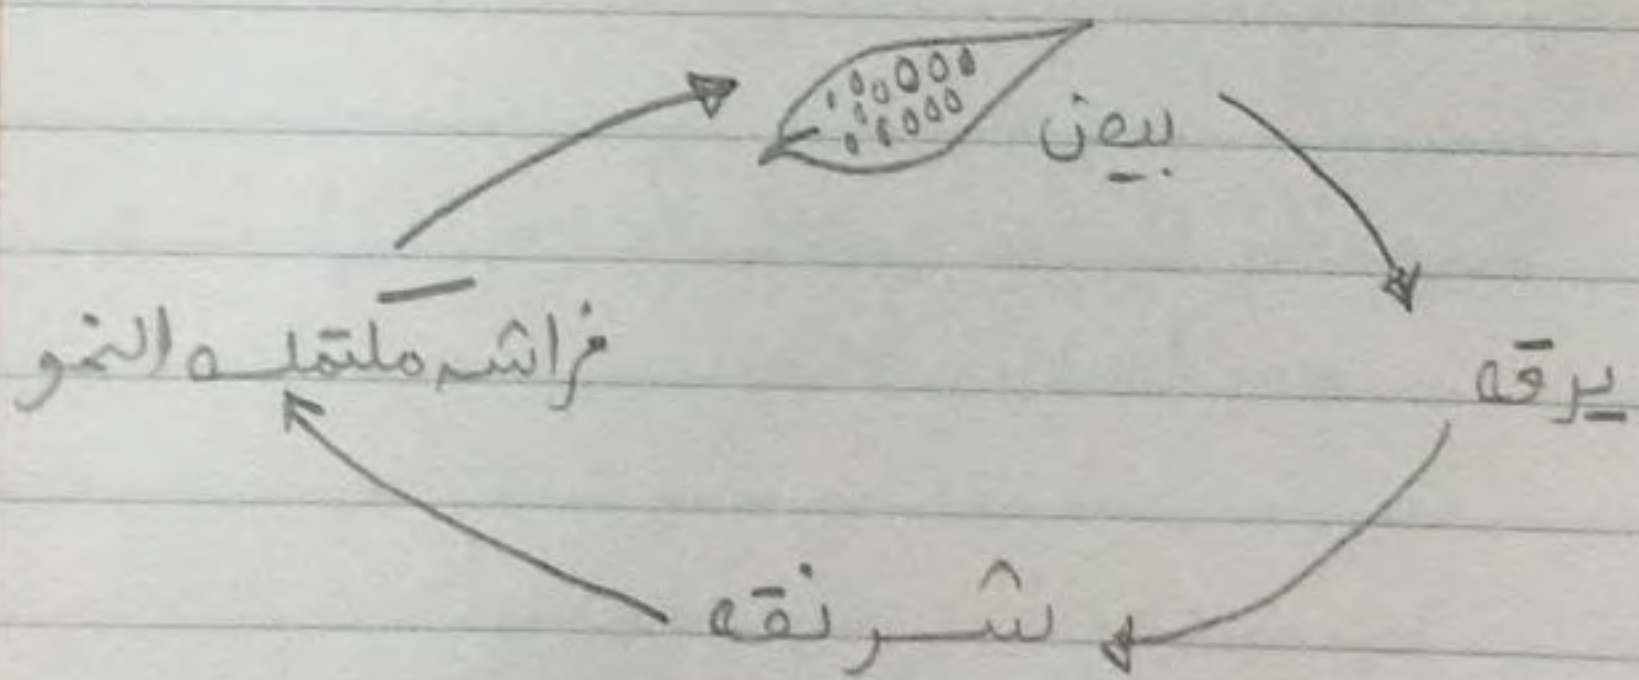 بيض
يرقه
شرنقه
فراشه مكتمله النمو